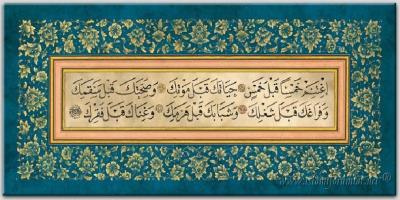 إغتنم خمسا قبل خمس حياتك قبل موتك وصحتك قبل سقمك
وفراغك قبل شغلك وشبابك قبل هرمك وغناك قبل فقرك